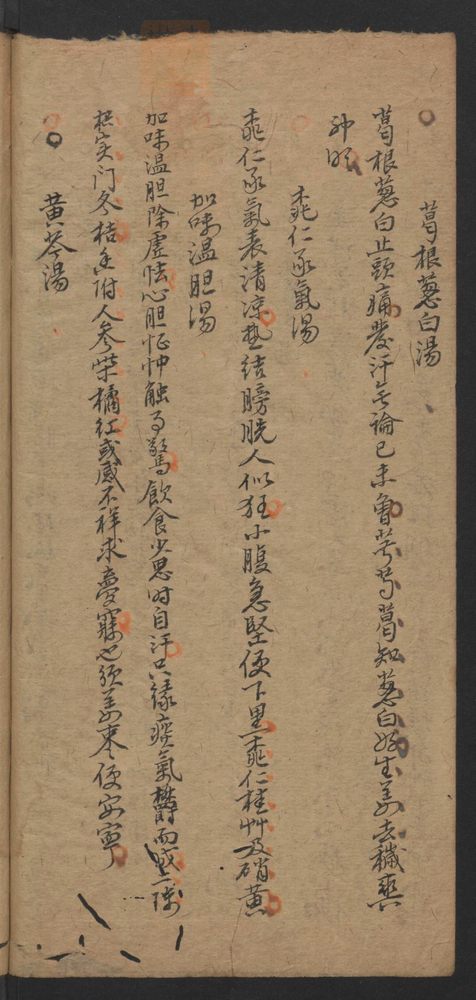 葛根蔥白湯
葛根蔥白止頭痛發汗無論已未曾芎芍葛知蔥白好生姜去穢爽
神明
桃仁承氣湯
桃仁承氣表清涼熱結膀胱人似狂小腹急堅便下黑桃仁桂艸及硝黃
加味温胆湯
加味温胆除虛怯心胆怔忡触事驚飲食少思时自汗只緣痰氣欝而成二陳
枳实门冬桔香附人參柴橘紅或感不祥求夢寐也須姜枣便安寧
黄芩湯